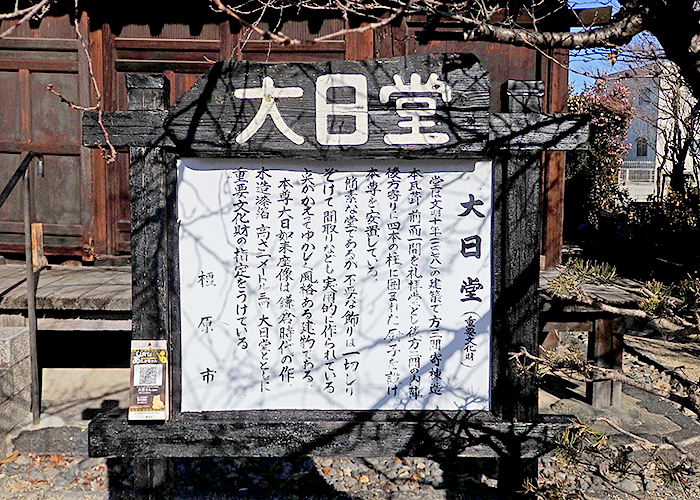 大日堂
大日堂(重要文化財)
堂は文明十年(一四七八)の建築で方三間寄棟造
本瓦葺 前面一間を礼拝堂とし後方二間の内陣
後方寄りに四本の柱に囲まれた厨子を設け
本尊を安置している。
簡素な堂であるが不必要な飾りは一切しり
ぞけて間取りなども実用的に作られている
点がかえってゆかしく風格ある建物である。
本尊大日如来座像は鎌倉時代の作、
木造漆箔 高さ二メートル 大日堂とともに
重要文化財の指定をうけている
橿原市